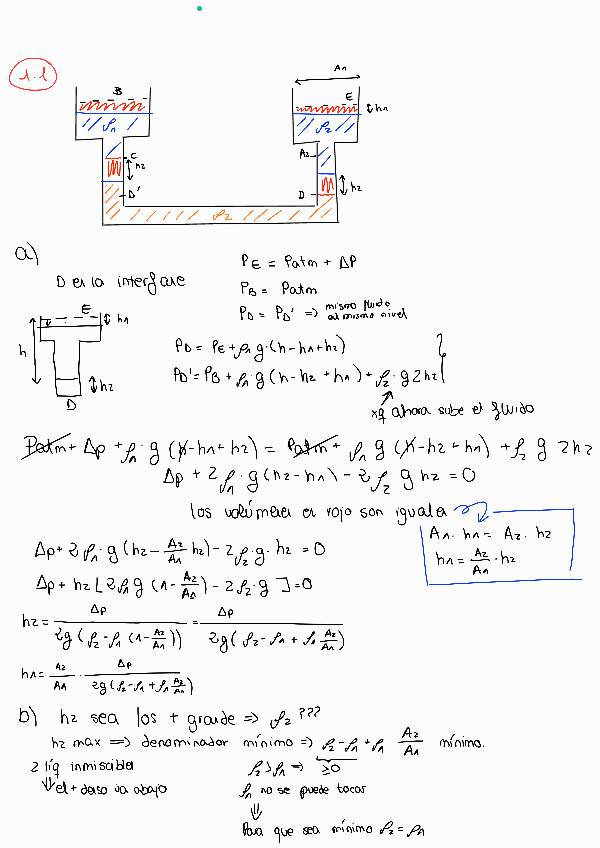 1.1
A1
B
E
h1
ρ1
ρ2
C
h2
A2
D'
D
h2
ρ2
a)
D es la interfase
PE = Patm + ΔP
PB = Patm
PD = PD' => mismo fluido al mismo nivel
E
h1
h
h2
D
PD = PE + ρ1 g·(h-h1+h2)
PD' = PB + ρ1·g(h-h2+h1) + ρ2·g 2h2
xq ahora sube el fluido
Patm + Δp + ρ1·g(h-h1+h2) = Patm + ρ1 g(h-h2+h1) + ρ2 g 2h2
Δp + 2ρ1·g(h2-h1) - 2ρ2 g h2 = 0
los volúmenes en rojo son iguales
A1·h1 = A2·h2
h1 = A2/A1·h2
Δp + 2ρ1·g(h2 - A2/A1 h2) - 2ρ2·g·h2 = 0
Δp + h2[2ρ1g(1 - A2/A1) - 2ρ2·g] = 0
h2 = Δp/2g(ρ2-ρ1(1-A2/A1)) = Δp/2g(ρ2-ρ1+ρ1 A2/A1)
h1 = A2/A1 · Δp/2g(ρ2-ρ1+ρ1 A2/A1)
b) h2 sea los + grande => ρ2 ???
h2 max => denominador mínimo => ρ2-ρ1+ρ1 A2/A1 mínimo.
2 líq inmiscibles
ρ2>ρ1 => ≥0
⇓ el + denso va abajo
ρ1 no se puede tocar
⇓
Para que sea mínimo ρ2 = ρ1